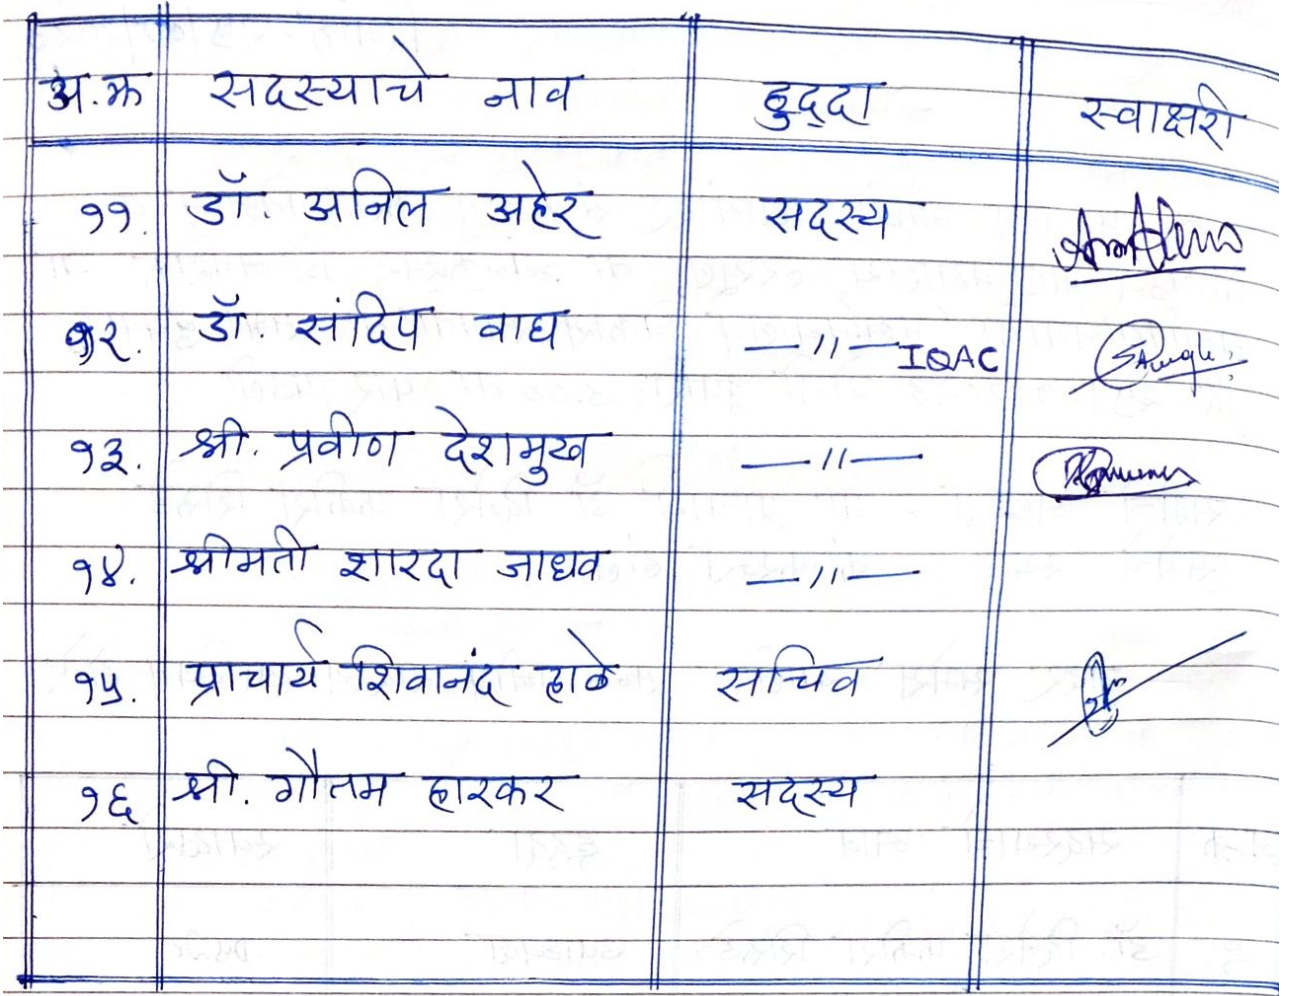 अ.क्र सदस्याचे नाव हुद्दा स्वाक्षरी
११. डॉ अनिल अहेर सदस्य
१२. डॉ. संदिप वाघ —〃— IQAC
१३. श्री. प्रवीण देशमुख —〃—
१४. श्रीमती शारदा जाधव —〃—
१५. प्राचार्य शिवानंद हाळे सचिव
१६ श्री. गौतम हारकर सदस्य